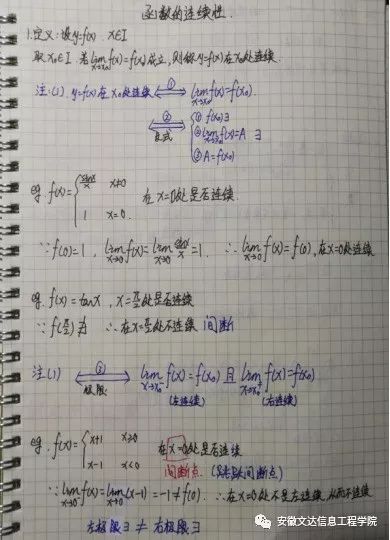 函数的连续性.
1.定义: 设y=f(x) x∈I
取x₀∈I 若lim x→x₀ f(x)=f(x₀)成立, 则称y=f(x)在x₀处连续.
注:(1). y=f(x)在x₀处连续 ⟺① lim x→x₀ f(x)=f(x₀).
⟺②
① f(x₀)∃
② lim x→x₀ f(x)=A ∃
③ A=f(x₀)
eg. f(x)={ sinx/x x≠0 在x=0处是否连续.
1 x=0.
∵f(0)=1, lim x→0 f(x)=lim x→0 sinx/x=1. ∴lim x→0 f(x)=f(0), 在x=0处连续
eg. f(x)=tanx, x=π/2处是否连续
∵f(π/2)∄ ∴在x=π/2处不连续 间断
注(1) ⟺③ lim x→x₀⁻ f(x)=f(x₀) 且 lim x→x₀⁺ f(x)=f(x₀)
极限 (左连续) (右连续)
eg. f(x)={ x+1 x≥0 在x=0处是否连续
x-1 x<0 间断点. (跳跃间断点)
∵lim x→0⁻ f(x)=lim x→0⁻ (x-1)=-1≠f(0). ∴在x=0处不是左连续, 从而不连续
左极限∃ ≠ 右极限∃
安徽文达信息工程学院